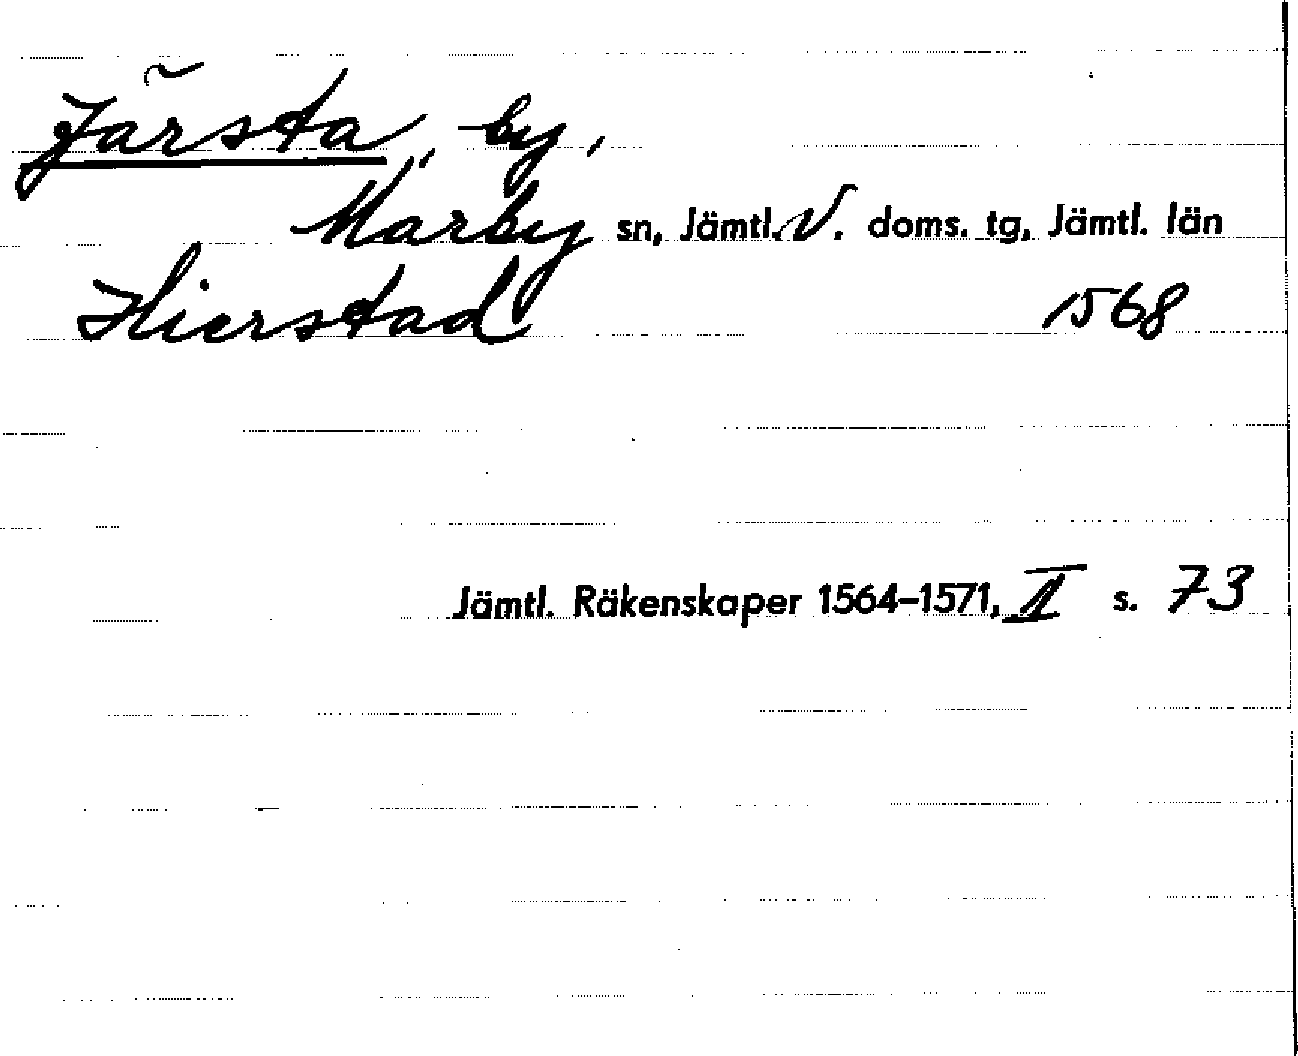 Järsta, by,
Marby sn, Jämtl. V. doms. tg, Jämtl. län
Hierstad 1568
Jämtl. Räkenskaper 1564–1571, II s. 73